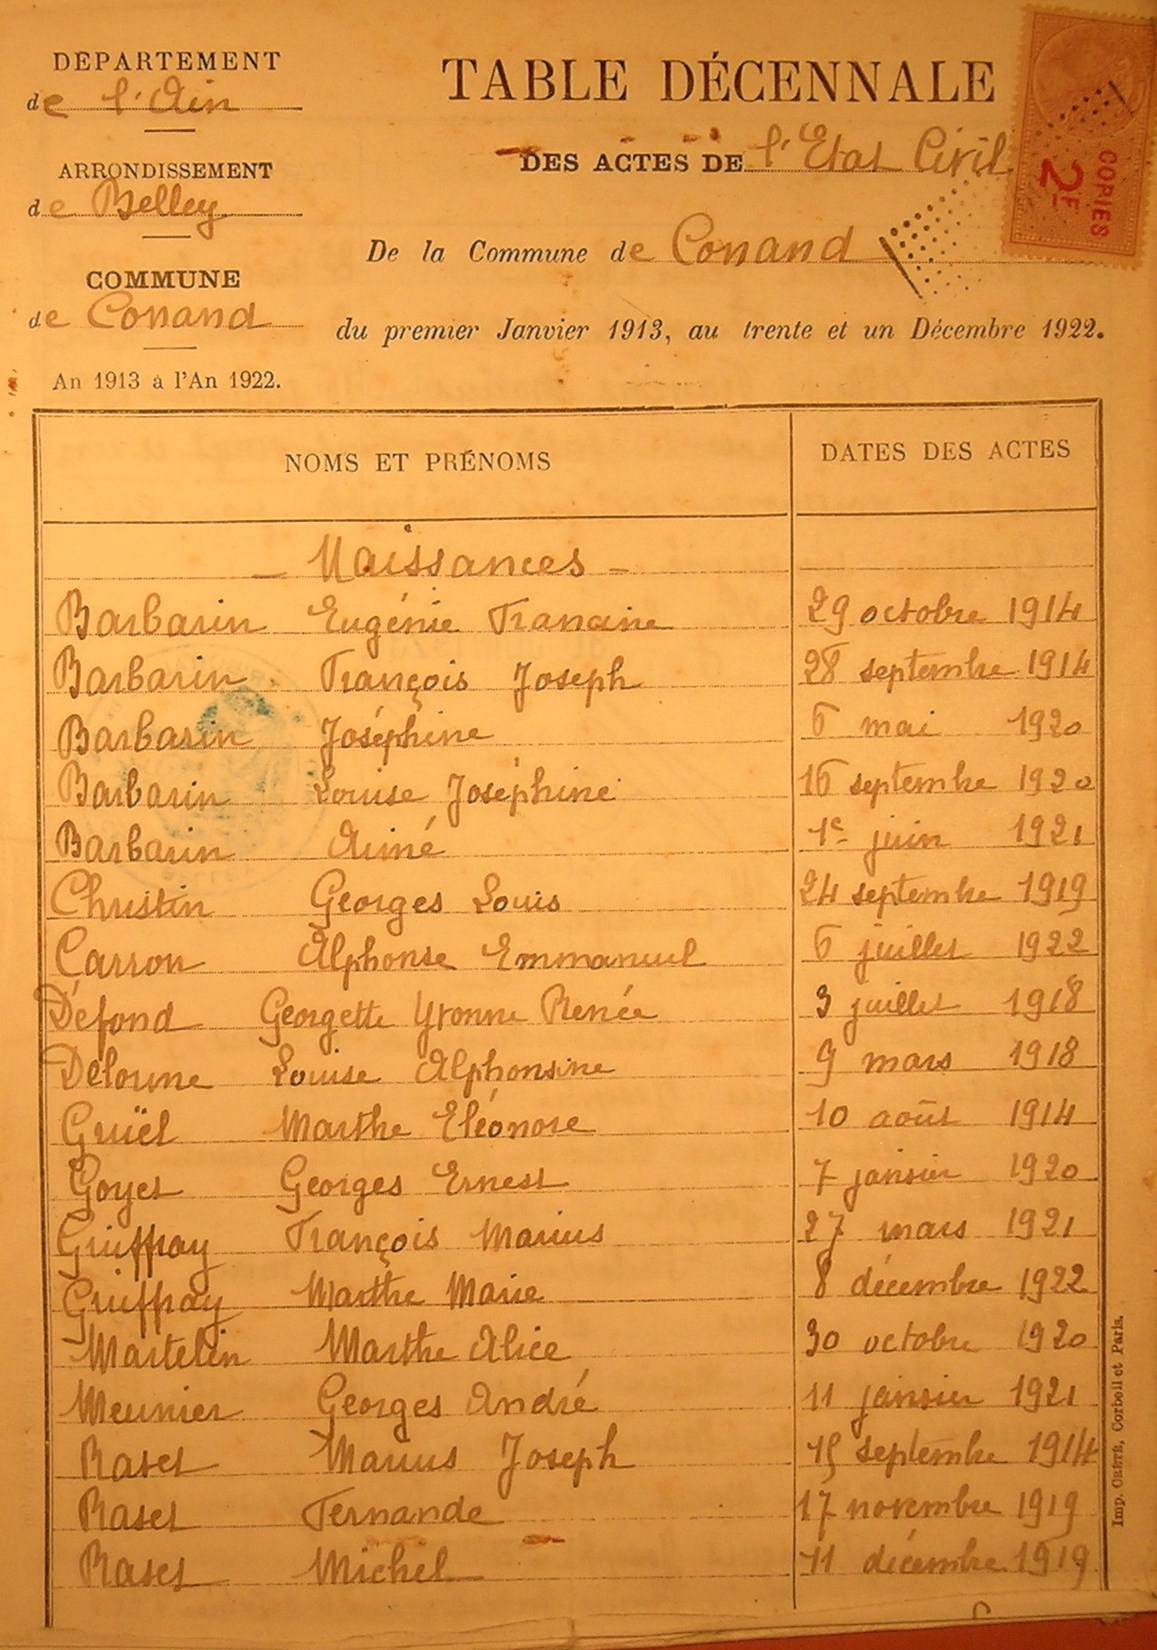 DEPARTEMENT
de l'Ain
ARRONDISSEMENT
de Belley
COMMUNE
de Conand
An 1913 à l'An 1922.
TABLE DÉCENNALE
DES ACTES DE l'Etat Civil
De la Commune de Conand
du premier Janvier 1913, au trente et un Décembre 1922.
COPIES
2F
NOMS ET PRÉNOMS DATES DES ACTES
– Naissances –
Barbarin Eugénie Francine 29 octobre 1914
Barbarin François Joseph 28 septembre 1914
Barbarin Joséphine 6 mai 1920
Barbarin Louise Joséphine 16 septembre 1920
Barbarin Aimé 1e juin 1921
Christin Georges Louis 24 septembre 1919
Carron Alphonse Emmanuel 6 juillet 1922
Défond Georgette Yvonne Renée 3 juillet 1918
Delorme Louise Alphonsine 9 mars 1918
Guiël Marthe Eléonore 10 août 1914
Goyet Georges Ernest 7 janvier 1920
Guiffray François Marius 27 mars 1921
Guiffray Marthe Marie 8 décembre 1922
Martelin Marthe Alice 30 octobre 1920
Meunier Georges André 11 janvier 1921
Ravet Marius Joseph 15 septembre 1914
Ravet Fernande 17 novembre 1919
Ravet Michel 11 décembre 1919
Imp. CRÉTÉ, Corbeil et Paris.